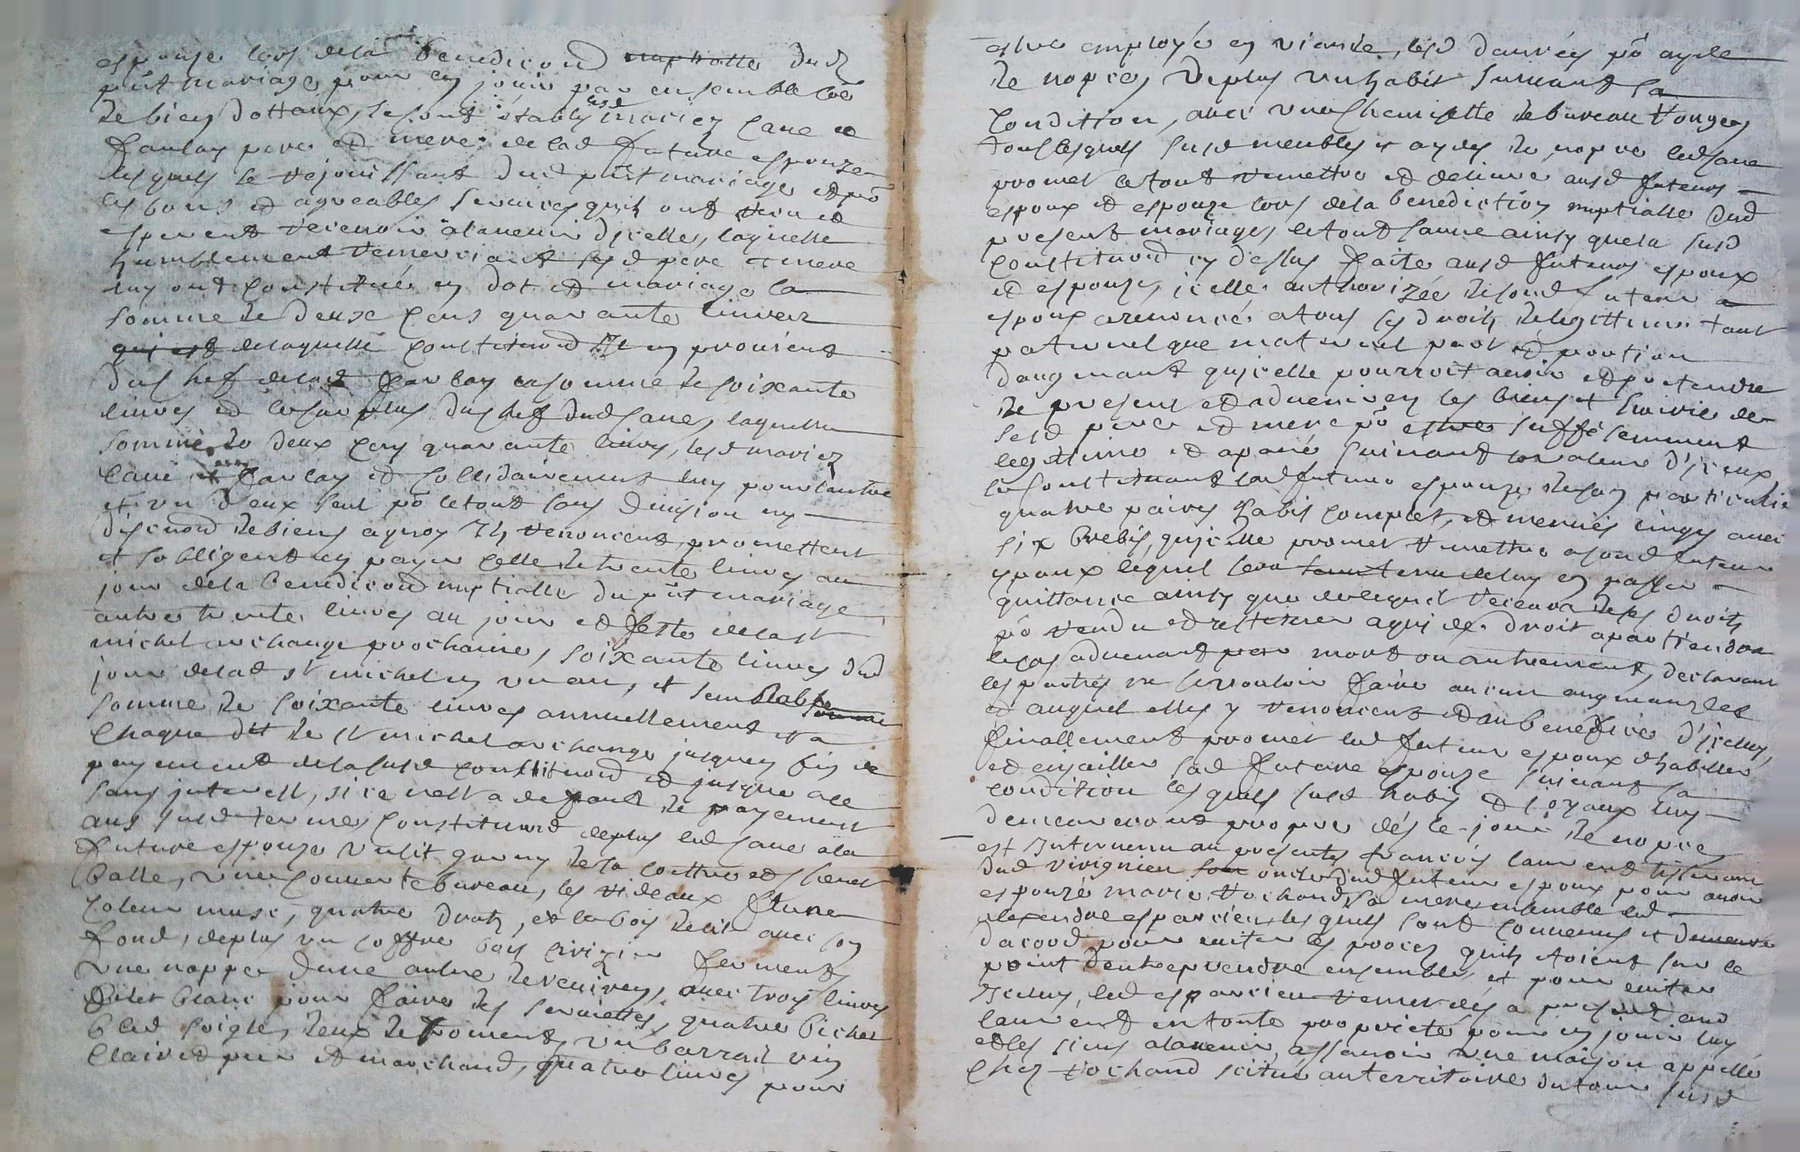 espouse lors de la benediction nuptialle dud
pñt mariage pour en jouir par ensemble coe
de bien dottaux, se sont establis lesd mariez Cane et
Faulay pere et mere de lad future espouze
lesquels se rejouissant dud pñt mariage et pō
les bons et agreables services quils ont receu et
esperent recevoir a ladvenir d'icelle, laquelle
humblement remerciant sesd pere et mere
luy ont constitué en dot et mariage la
somme de deux cens quarante livres
qui est de laquelle constitution Il en provient
du chef de lad Faulay la somme de soixante
livres et le surplus du chef dud Cane, laquelle
somme de deux cens quarante livres, lesd mariez
Cane et Faulay et sollidairement luy pour lautre
et un deux seul pō le tout sans division ny
discution de biens a quoy Ils renoncent promettent
et sobligent en payer celle de trente livres au
jour de la benediction nuptialle du pñt mariage
autre trente livres au jour et feste de la st
michel archange prochaine, soixante livres dud
jour de lad st michel en un an, et semblable
somme de soixante livres annuellement et a
chaque feste de st michel archange jusques fin de
payement de la susd constitution et jusque a ce
sans interest, si ce nest a defaut de payement
aux susd termes, constituant de plus led Cane a la
future espouze un lit garny de sa coettre et cuissin
balle, une couverte bureau, les rideaux
coleur musc, quatre draps, et le bois de lit avec son
fond, de plus un coffre bois cerizier fermant
une nappe dune autre de, avec trois livres
filet blanc pour faire des serviettes, quatre bichet
bled soigle, deux de froment, un barrail vin
clairet pur et marchand, quatre livres pour
estre employé en viande, lesd danrées pō ayde
de nopces, de plus un habit suivant sa
condition, avec une chemisette de bureau rouge,
tous lesquels susd meubles et aydes de nopce led Cane
promet le tout remettre et delivrer ausd futeurs
espoux et espouze lors de la benediction nuptialle dud
present mariage, le tout sauve ainsy que la susd
constitution cy dessus faite ausd futeurs espoux
et espouze, icelle authorizée de sond futeur
espoux a renoncé a tous ses droits de legittime tant
paternel que maternel part et portion
daugmant qu'icelle pourroit avoir et pretendre
de present et a ladvenir en les biens et hoirie de
sesd pere et mere pō estre suffisemment
legitimé et apané suivant la valeur d'iceux
se constituant lad future espouze de son particulier
quatre paires habit complet, et menues linges avec
six brebis, qu'icelle promet remettre a sond futeur
espoux lequel sera tenu de luy en passer
quittance ainsy que de lequel recevra de ses droits
pō rendu et restituer a qui de droit apartiendra
le cas advenant par mort ou autrement, declarant
les parties ne se vouloir faire aucun augmans
et auquel elles y renoncent et au benefice d'iceluy,
finallement promet led futeur espoux dhabiller
et enjailler sad future espouze suivant sa
condition lesquels susd habis et joyaux luy
demeureront propre dés le jour de nopces
est Intervenu au presentes francois laurend tisseran
dud virignieu son oncle dud futeur espoux pour avoir
espouzé marie rochand sa mere ensemble led
alexandre esparcieu lesquels sont convenus et demeure
dacord pour eviter les proces quils etoient sur le
point dentreprendre ensembles, et pour eviter
Iceluy, led esparcieu remet dés a present aud
laurend en toute proprieté pour en jouir luy
et les siens a ladvenir, a sçavoir une maison appellé
chez rochand scitue au territoire du tour susd